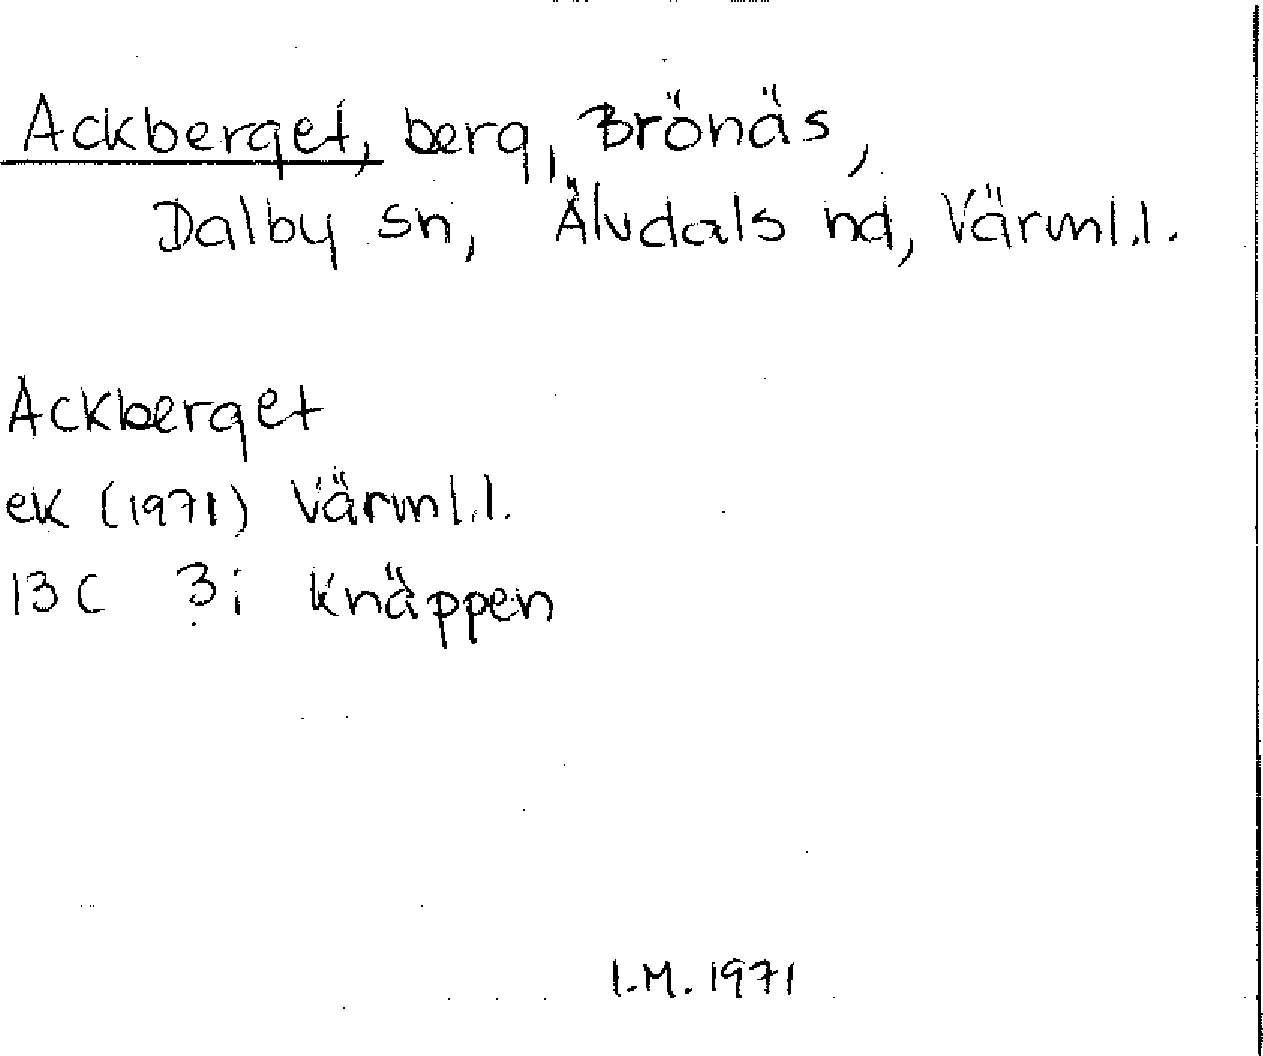 Ackberget, berg, Brönäs,
Dalby sn, Älvdals hd, Värml.l.
Ackberget
ek (1971) Värml.l.
13 C 3 i Knäppen
I.M. 1971